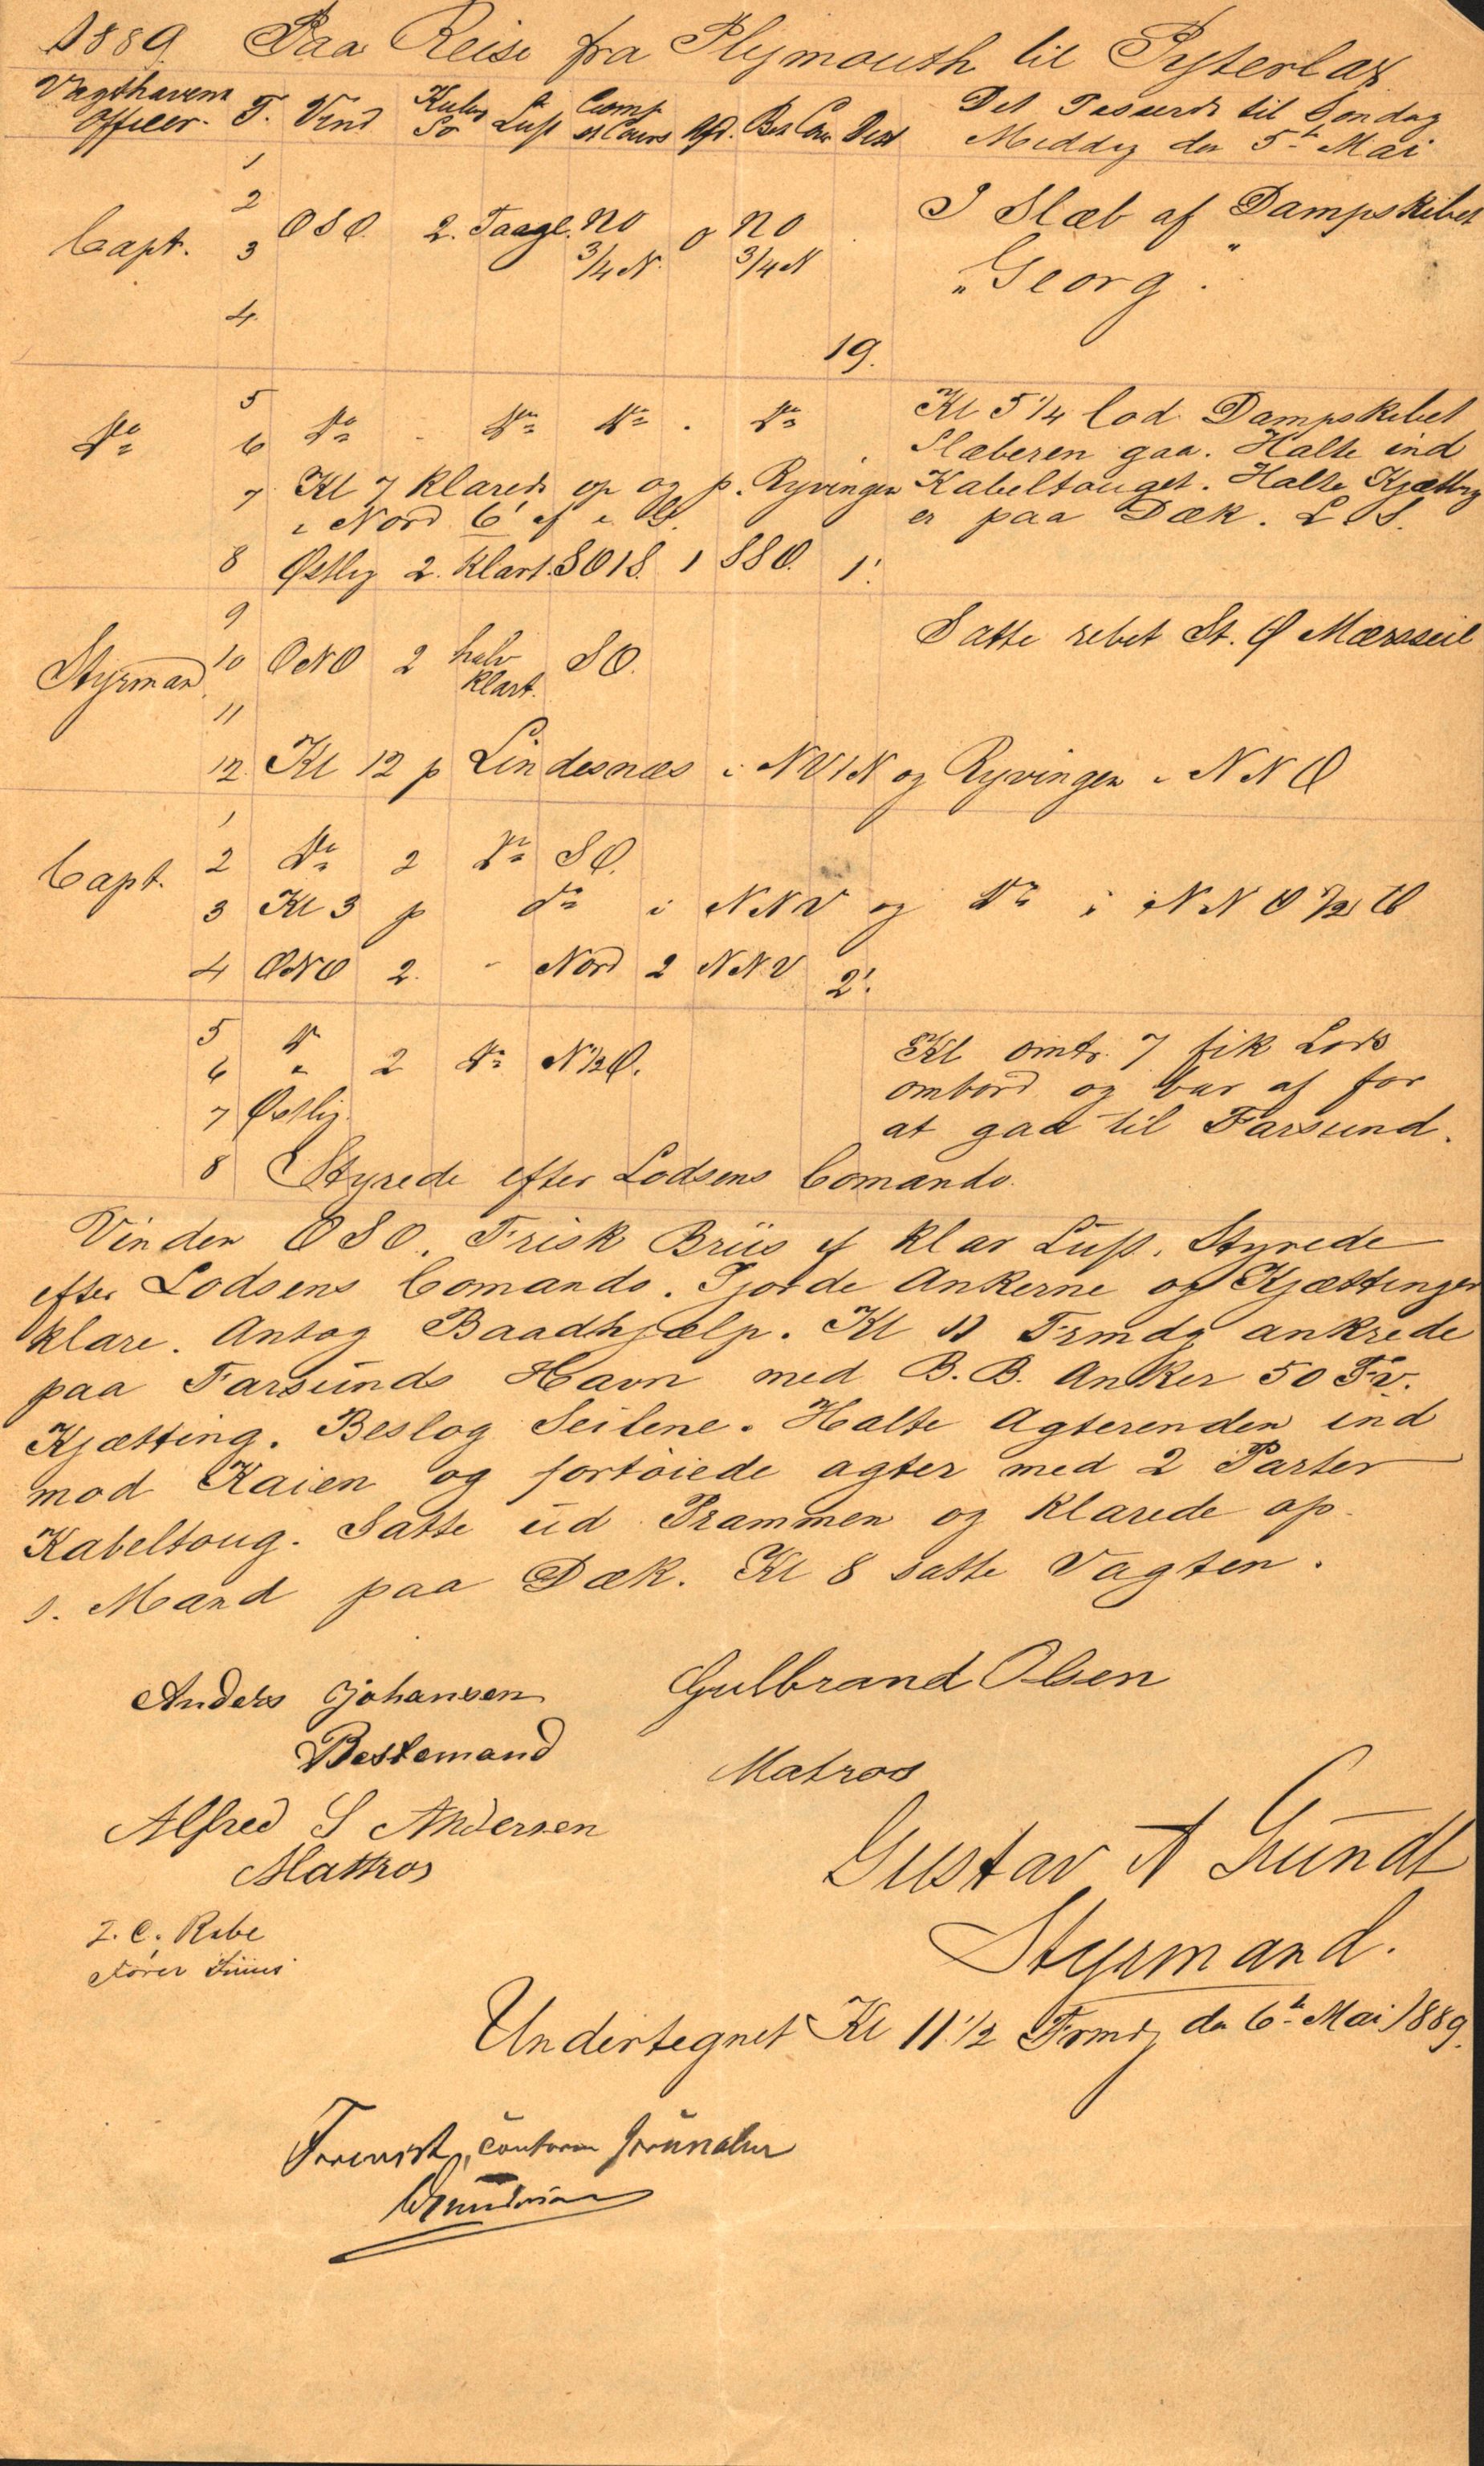 1889. Paa Reise fra Plymouth til Pyterlax
Vagthavene Officer. T. Vind Luft Comp Cours Afd. Bes Cou Dist Det Passerede til Søndag
Middag den 5te Mai
1
2
Capt. 3 OSO. 2. Taage. NO 3/4 N. 0 NO 3/4 N I Slæb af Dampskibet
"Georg".
4
19.
5 Kl 5 1/4 lod Dampskibet
Do 6 Do - Do Do . Do Slæberen gaa. Halte ind
7 Kl 7 klarede op og p. Ryvingen Kabeltouget. Halte Kjætting
i Nord 6' af i S. er paa Dæk. L. S.
8 Østlig 2. klart. SO1S. 1 SSO. 1'.
9
Styrman 10 ONO 2 halv klart. SO. Satte rebet St. & Mærsseil
11
12. Kl 12 p Lindesnæs i NV1N og Ryvingen i NNO
1
Capt. 2 Do 2 Do SO.
3 Kl 3 p do i NNV og Do i NNO 1/2 O
4 ONO 2. - Nord 2 NNV 2'.
5 Do
6 " 2 Do N 1/2 O. Kl omtr. 7 fik Lods
7 Østlig. ombord og bar af for
at gaa til Farsund.
8 Styrede efter Lodsens Comando.
Vinden OSO. Friisk Briis & klar Luft. Styrede
efter Lodsens Comando. Gjorde Ankerne og Kjættinger
klare. Antog Baadhjælp. Kl 11 Frmdg ankrede
paa Farsunds Havn med B.B. Anker 50 Fv.
Kjætting. Beslog Seilene. Halte Agterenden ind
mod Kaien og fortøiede agter med 2 Parter
Kabeltoug. Satte ud Prammen og klarede op
1. Mand paa Dæk. Kl 8 satte Vagten.
Anders Johansen Gulbrand Olsen
Bestemand Matros
Alfred S Andersen
Mattros Gustav A Grundt
J. C. Rabe Styrmand.
Fører
Undertegnet Kl 11 1/2 Frmdg den 6te Mai 1889.